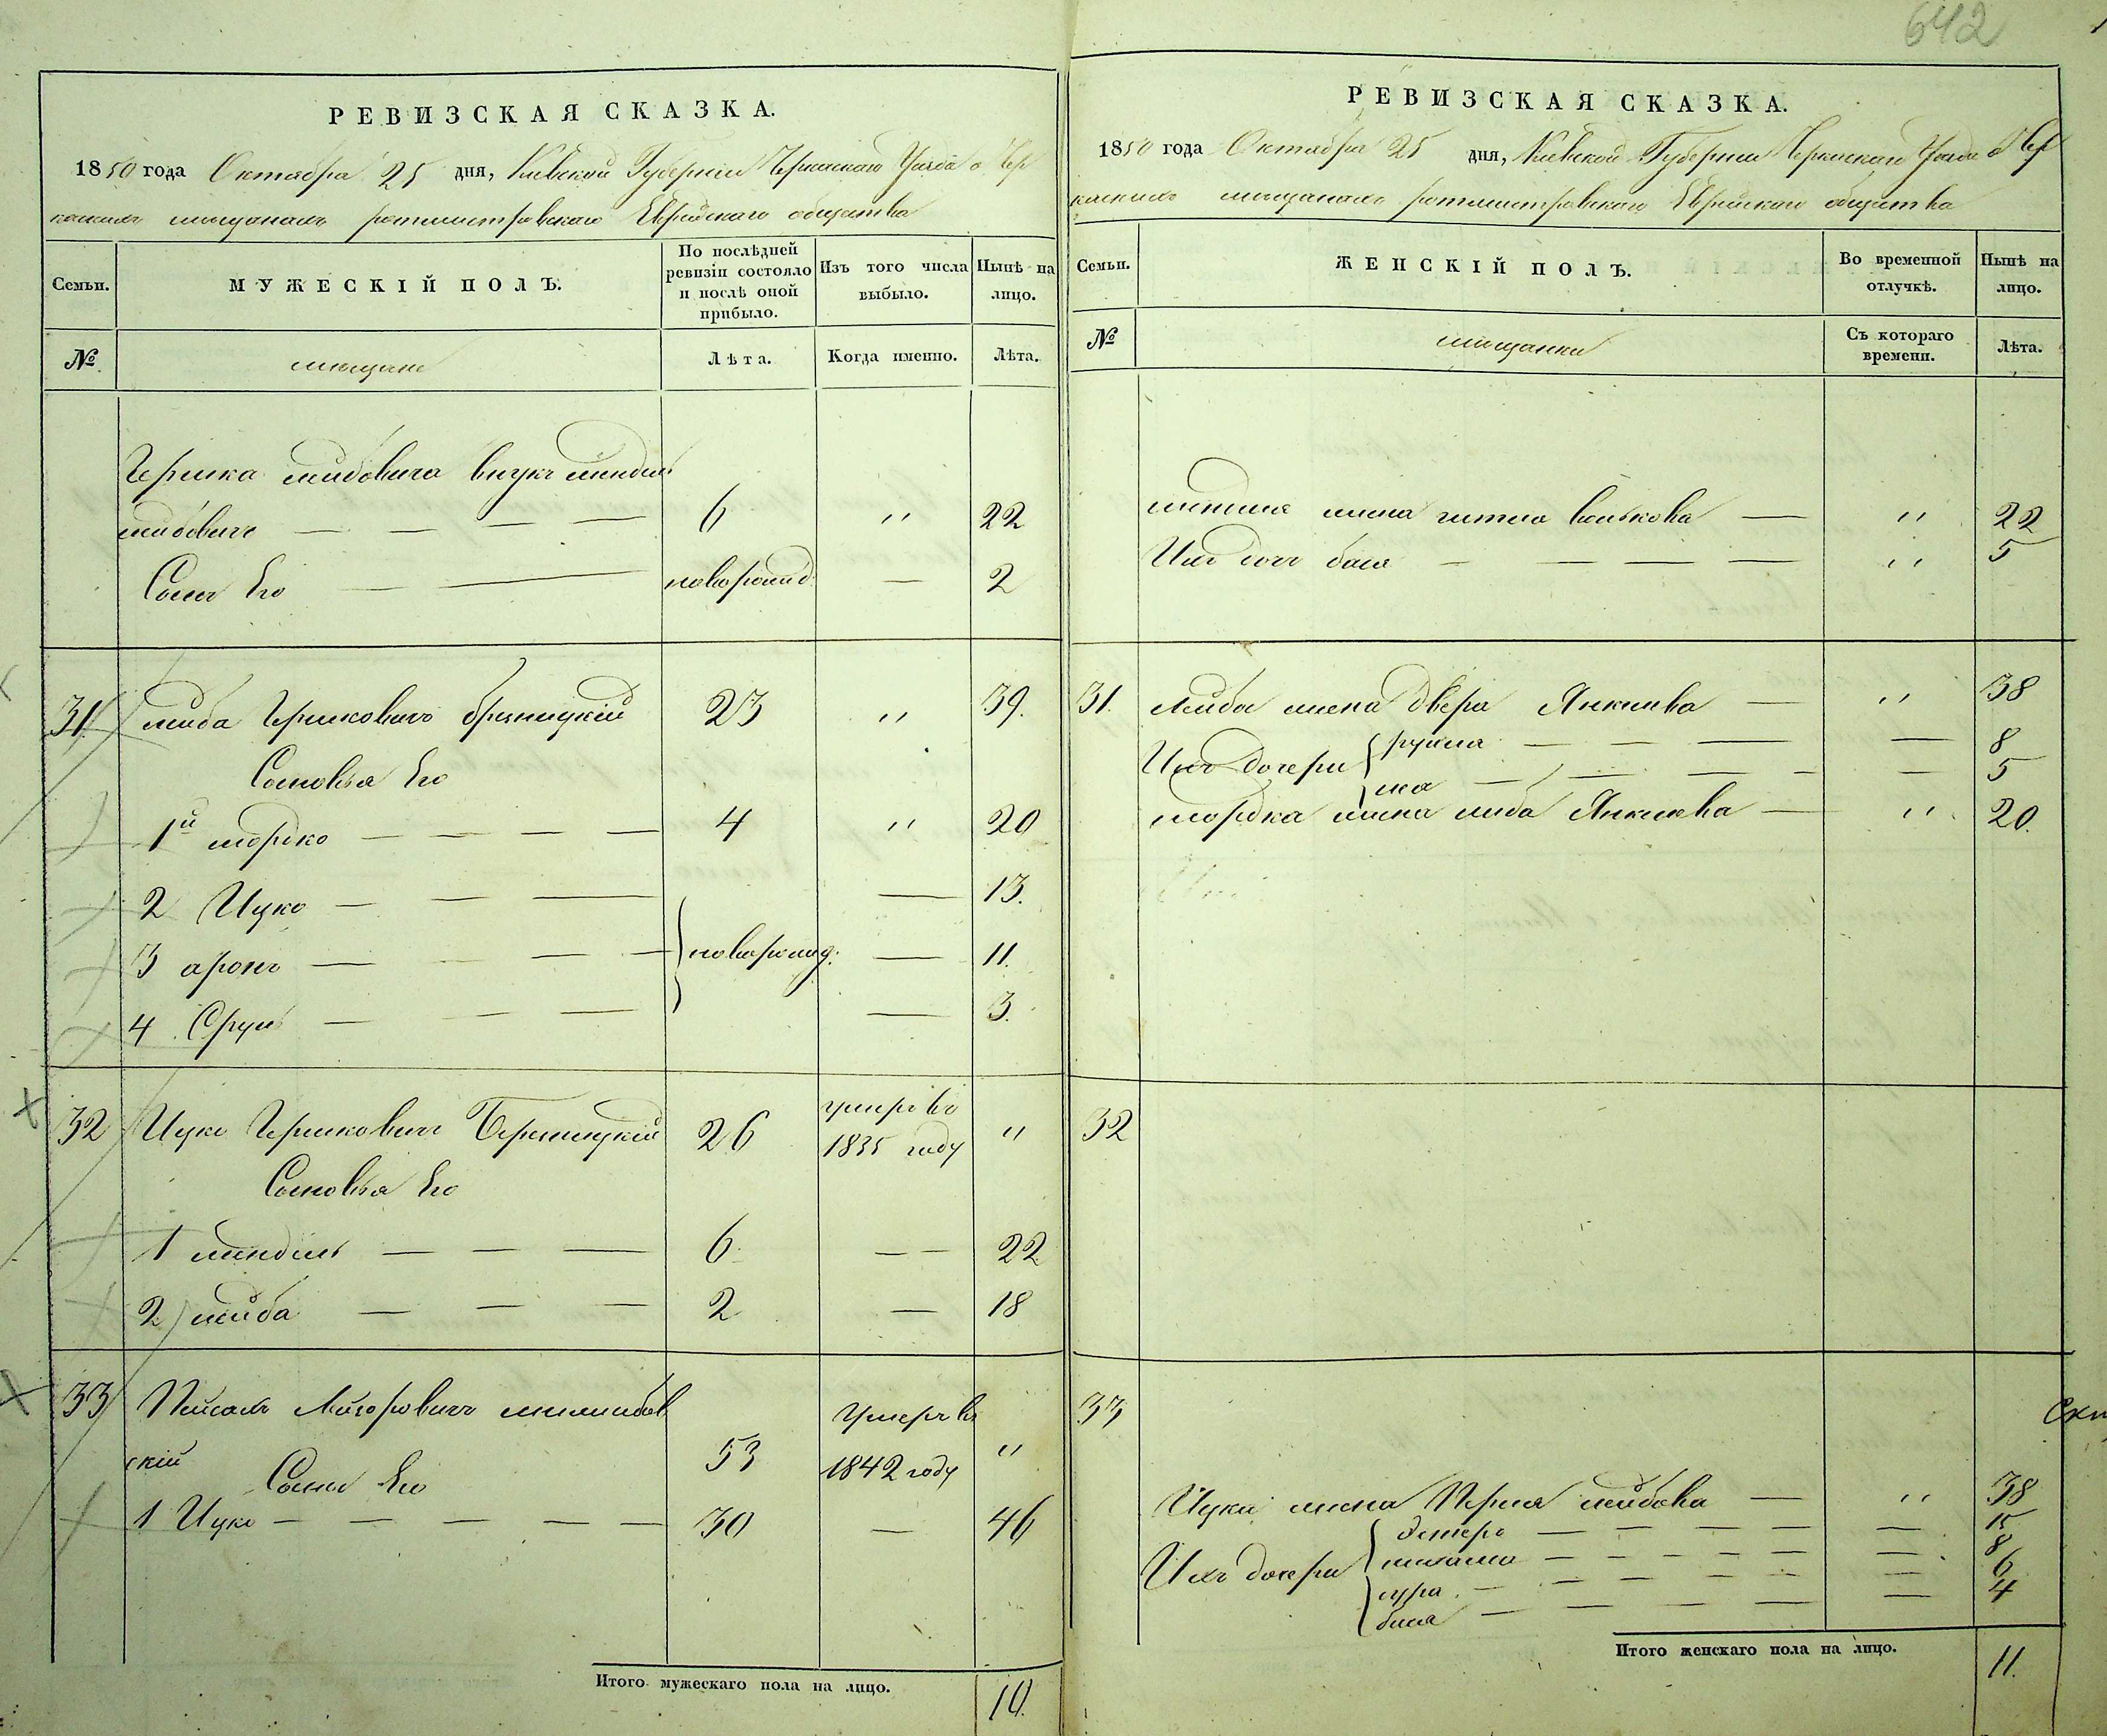 642
РЕВИЗСКАЯ СКАЗКА.
1850 года Октября 25 дня, Киевской Губернии Черкаскаго Уезда о Чер
каскихъ мещанахъ ротмистровскаго Еврейскаго общества
Семьи.
МУЖЕСКІЙ ПОЛЪ.
По послѣдней ревизіи состояло и послѣ оной прибыло.
Изъ того числа выбыло.
Нынѣ на лицо.
№
мещане
Лѣта.
Когда именно.
Лѣта.
Гершка лейбовича внукъ мендель
лейбовичъ — — — — 6 " 22
Сынъ Его — — новорожд — 2
31 лейба Гершковичъ 23 " 39.
Сыновья Его
1й мордко — — — — 4 " 20
2 Ицко — — — — 13.
3 аронъ — — — — новорожд: — 11.
4 Сруль — — — — 3.
32 Ицко Гершковичъ 26 умеръ въ 1835 году "
Сыновья Его
1 мендель — — — 6 — — 22
2 лейба — — — 2 — 18
33
скій 53 умеръ въ 1842 году "
Сынъ Его
1 Ицко — — — — — 30 — 46
Итого мужескаго пола на лицо.
10.
РЕВИЗСКАЯ СКАЗКА.
1850 года Октября 25 дня, Киевской Губернии Черкаскаго Уезда о Чер
каскихъ мещанахъ ротмистровскаго Еврейскаго общества
Семьи.
ЖЕНСКІЙ ПОЛЪ.
Во временной отлучкѣ.
Нынѣ на лицо.
№
мещанки
Съ котораго времени.
Лѣта.
менделя жена волькова — " 22
Ихъ дочь бася — — — — " 5
31. Лейбы жена Двера Янкелева — " 38
Ихъ дочери { — — — — 8
— — — — — 5
мордка жена Янкелева — " 20.
32
33
Ицки жена Перля лейбова — " 38
Ихъ дочери { — — — — — 15
— — — — — — 8
сура — — — — — 6
бася — — — — — 4
Итого женскаго пола на лицо.
11.